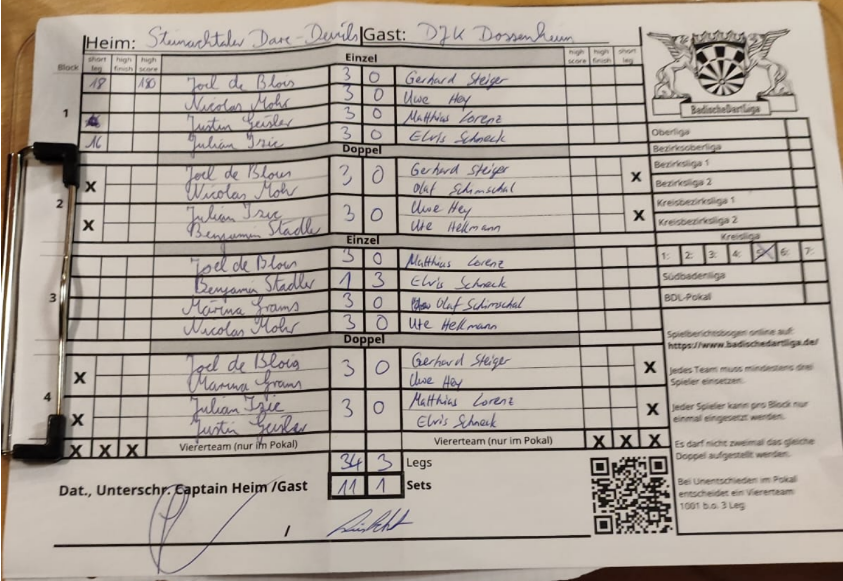 Heim: Steinachtaler Dare-Devils Gast: DJK Dossenheim
Block short leg high finish high score Einzel high score high finish short leg
1
18 180 Joel de Blois 3 0 Gerhard Steiger
Nicolas Mohr 3 0 Uwe Hey
Justin Geisler 3 0 Matthias Lorenz
16 Julian Izic 3 0 Elvis Schneck
Doppel
2
X Joel de Blois 3 0 Gerhard Steiger X
Nicolas Mohr Olaf Schimschal
X Julian Izic 3 0 Uwe Hey X
Benjamin Stadler Ute Hekmann
Einzel
3
Joel de Blois 3 0 Matthias Lorenz
Benjamin Stadler 1 3 Elvis Schneck
Marina Grams 3 0 Olaf Schimschal
Nicolas Mohr 3 0 Ute Hekmann
Doppel
4
X Joel de Blois 3 0 Gerhard Steiger X
Marina Grams Uwe Hey
X Julian Izic 3 0 Matthias Lorenz X
Justin Geisler Elvis Schneck
X X X Viererteam (nur im Pokal) Viererteam (nur im Pokal) X X X
34 3 Legs
Dat., Unterschr. Captain Heim /Gast 11 1 Sets
/
BadischeDartLiga
Oberliga
Bezirksoberliga
Bezirksliga 1
Bezirksliga 2
Kreisbezirksliga 1
Kreisbezirksliga 2
Kreisliga
1: 2: 3: 4: 5: X 6: 7:
Südbadenliga
BDL-Pokal
Spielberichtsbogen online auf:
https://www.badischedartliga.de/
Jedes Team muss mindestens drei
Spieler einsetzen.
Jeder Spieler kann pro Block nur
einmal eingesetzt werden.
Es darf nicht zweimal das gleiche
Doppel aufgestellt werden.
Bei Unentschieden im Pokal
entscheidet ein Viererteam
1001 b.o. 3 Leg